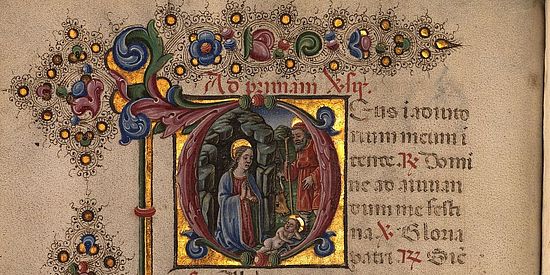 Ad primam Vsq.
Deus i adiuto
rium meum i
tende. R Domi
ne ad iuuan
dum me festi
na. V Gloria
patri R Sic